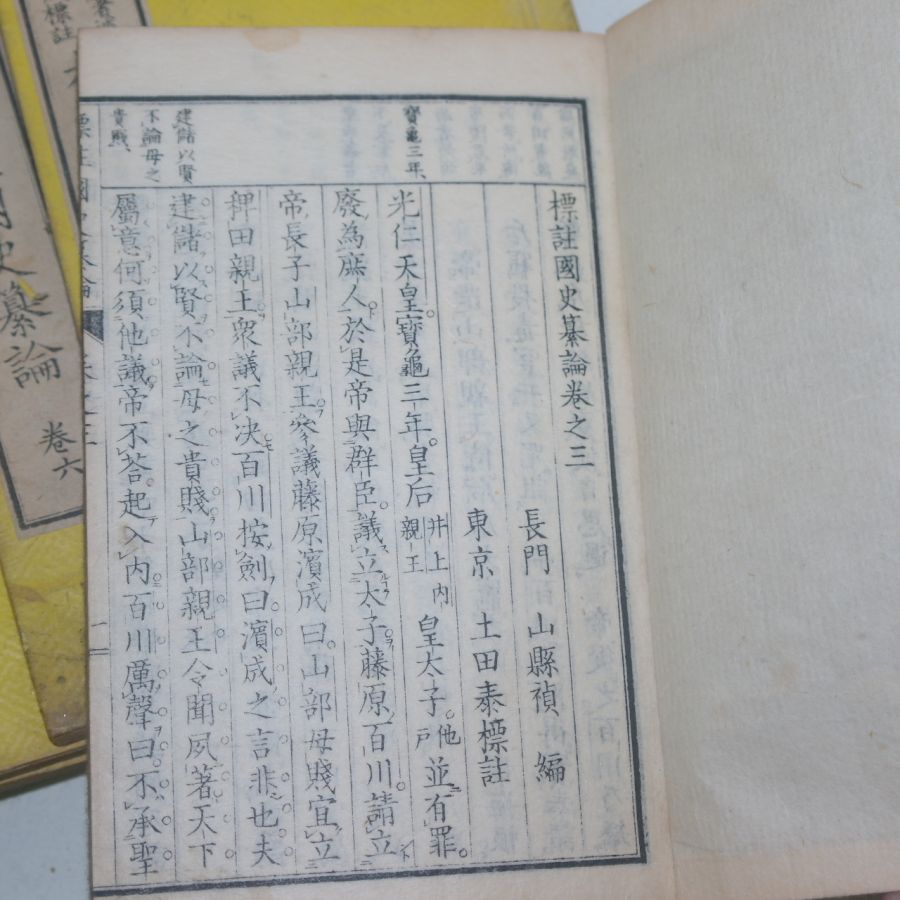 標註國史纂論卷之三
長門 山縣禎 編
東京 土田泰標註
寶龜三年
光仁天皇寶龜三年。皇后井上內親王皇太子。他戶並有罪。
廢為庶人。於是帝與群臣。議立太子。藤原百川。請立
帝長子山部親王。參議藤原濱成曰。山部母賤。宜立
稗田親王。衆議不決。百川按劍曰。濱成之言非也。夫
建儲以賢
不論母之
貴賤、
建儲以賢。不論母之貴賤。山部親王令聞夙著。天下
屬意。何須他議。帝不荅。起入內。百川厲聲曰。不承聖
史纂論
卷六
標註